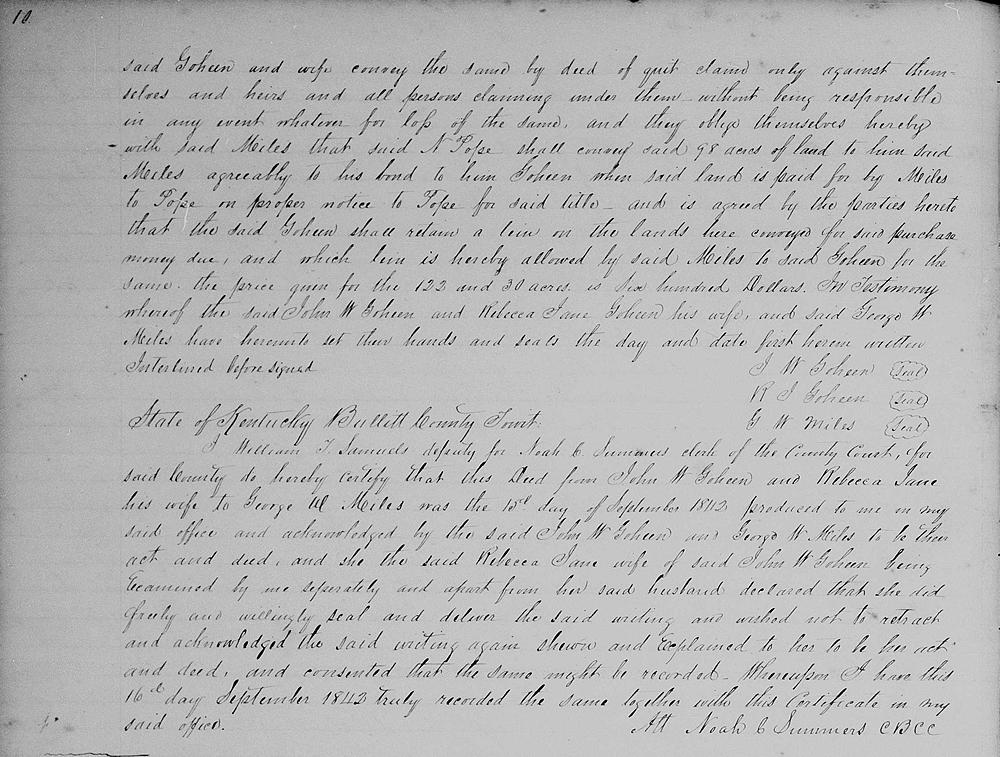 10.
said Goheen and wife convey the same by deed of quit claim only against them-
selves and heirs and all persons claiming under them without being responsible
in any event whatever for loss of the same, and they oblige themselves hereby
with said Miles that said N Pope shall convey said 98 acres of land to him said
Miles agreeably to his bond to him Goheen when said land is paid for by Miles
to Pope on proper notice to Pope for said title - and is agreed by the parties hereto
that the said Goheen shall retain a lein on the lands here conveyed for said purchase
money due, and which lein is hereby allowed by said Miles to said Goheen for the
same. the price given for the 122 and 30 acres. is six hundred Dollars. In Testimony
whereof the said John W Goheen and Rebecca Jane Goheen his wife, and said George W
Miles have hereunto set their hands and seals the day and date first herein written
Interlined before signed
J W Goheen (Seal)
R J Goheen (Seal)
G W Miles (Seal)
State of Kentucky Bullitt County Towit:
I William T. Samuels deputy for Noah C. Summers clerk of the County Court, for
said County do hereby certify that this Deed from John W Goheen and Rebecca Jane
his wife to George W Miles was the day of September 1842 produced to me in my
said office and acknowledged by the said John W Goheen and George W Miles to be their
act and deed, and she the said Rebecca Jane wife of said John W Goheen being
Examined by me seperately and apart from her said husband declared that she did
freely and willingly seal and deliver the said writing and wished not to retract
and acknowledged the said writing again shewn and Explained to her to be her act
and deed, and consented that the same might be recorded - Whereupon I have this
16th day September 1842 truly recorded the same together with this Certificate in my
said office.
Att Noah C Summers CBCC